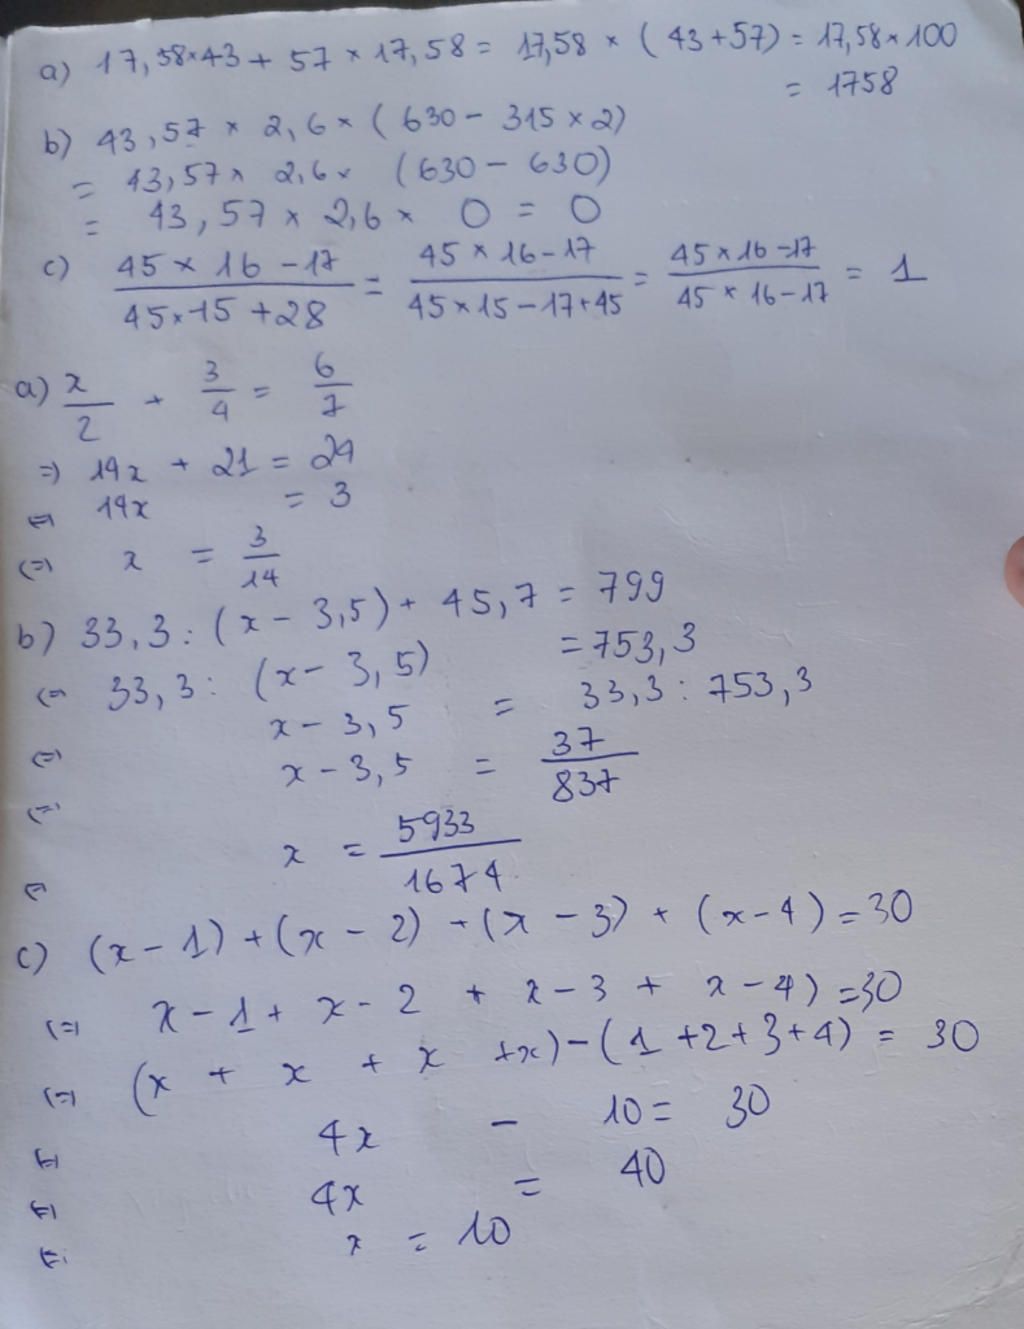 a) 17,58×43 + 57 × 17,58 = 17,58 × ( 43+57) = 17,58 × 100
= 1758
b) 43,57 × 2,6 × ( 630 - 315 × 2)
= 43,57 × 2,6 × (630 - 630)
= 43,57 × 2,6 × 0 = 0
c) (45 × 16 - 17)/(45 × 15 + 28) = (45 × 16 - 17)/(45 × 15 - 17 + 45) = (45 × 16 - 17)/(45 × 16 - 17) = 1
a) x/2 + 3/4 = 6/7
=) 14x + 21 = 24
(=) 14x = 3
(=) x = 3/14
b) 33,3 : (x - 3,5) + 45,7 = 799
(=) 33,3 : (x - 3,5) = 753,3
x - 3,5 = 33,3 : 753,3
(=) x - 3,5 = 37/837
(=)
x = 5933/1674
(=)
c) (x - 1) + (x - 2) + (x - 3) + (x - 4) = 30
(=) x - 1 + x - 2 + x - 3 + x - 4) = 30
(=) (x + x + x + x) - (1 + 2 + 3 + 4) = 30
(=) 4x - 10 = 30
(=) 4x = 40
(=) x = 10